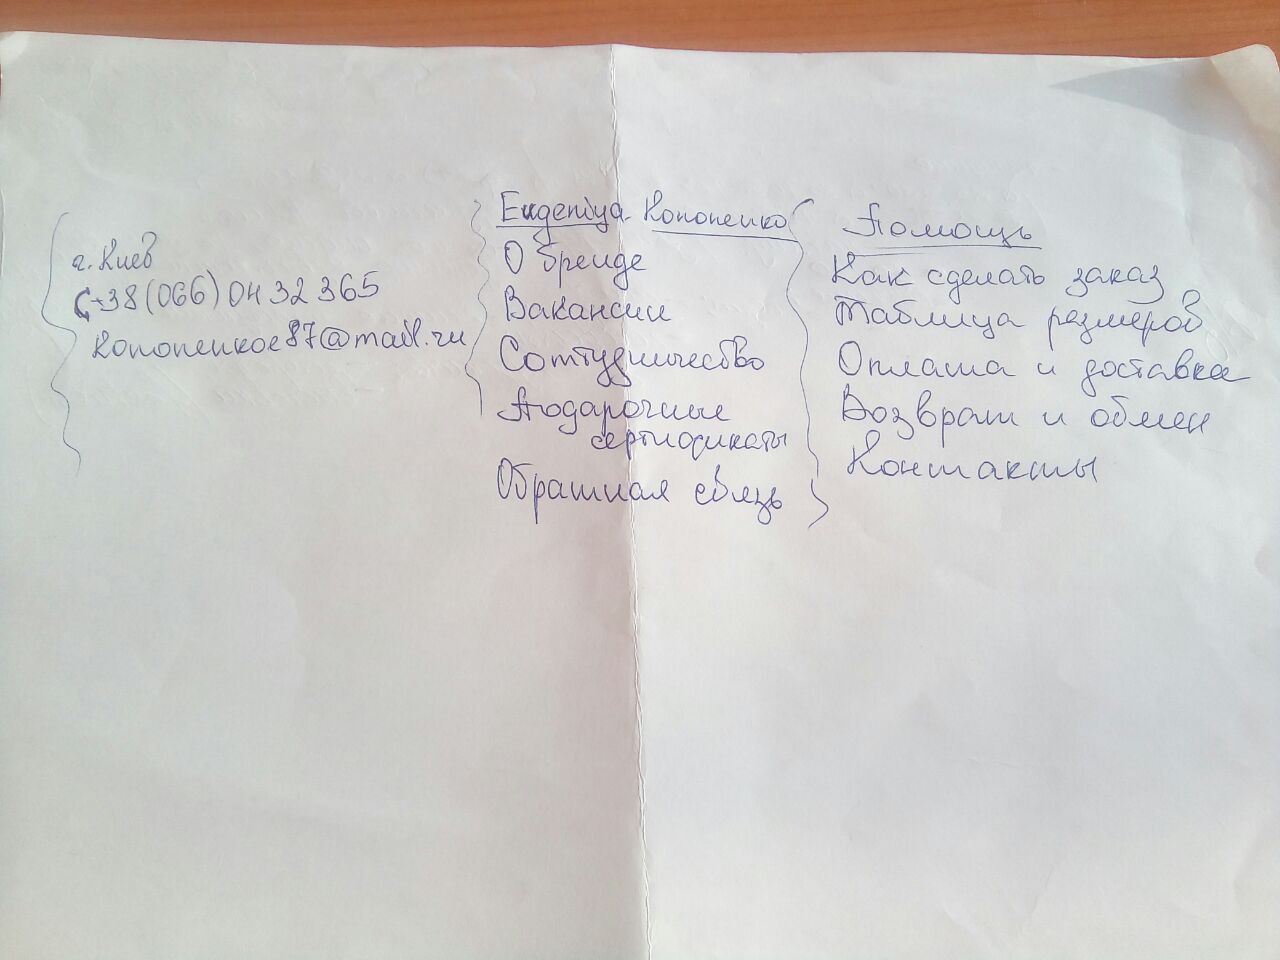 г. Киев
+38(066) 04 32 365
kononenkoe87@mail.ru
Evgeniya Kononenko
О бренде
Вакансии
Сотрудничество
Подарочные
сертификаты
Обратная связь
Помощь
Как сделать заказ
Таблица размеров
Оплата и доставка
Возврат и обмен
Контакты